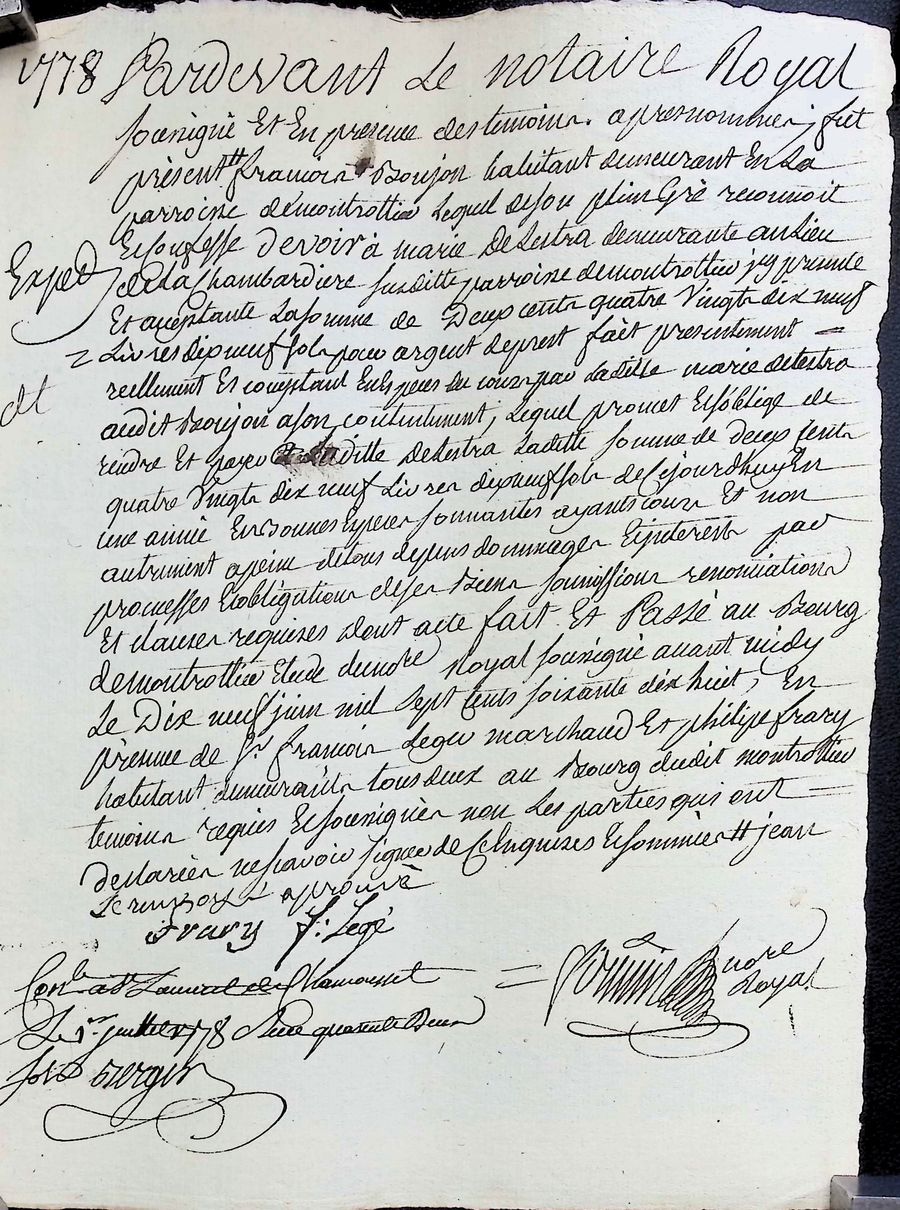 1778 Pardevant Le notaire Royal
soussigné Et En presence des temoins apres nommés, fut
présent # francois Boujon habitant demeurant En La
parroisse de montrottier Lequel de son plein Gré reconnoit
Et Confesse Devoir à marie Delestra demeurante au Lieu
Exped
de la Chambardiere susditte parroisse de montrottier icy presente
Et acceptante La somme de Deux cents quatre Vingt dix neuf
= Livres dix neuf sols pour argent de prest fait presentement =
reellement Et comptant En Especes de cours par Laditte marie delestra
dt
audit Boujon a son contentement, Lequel promet Et s'oblige de
rendre Et payer a Laditte Delestra Laditte somme de deux Cents
quatre Vingt dix neuf Livres dix neuf sols de Cejourdhuy En
une année En Bonnes Especes sonnantes ayants cours Et non
autrement a peine de tous depens dommages Et interests par
promesses Et obligations de ses Biens soumissions renonciations
Et clauses requises dont acte fait Et Passé au Bourg
de montrottier Etude du nore Royal soussigné avant midy
Le Dix neuf juin mil sept Cents soixante dix huit, En
présence de Sr francois Leger marchand Et philipe frary
habitant demeurants tous deux au Bourg dudit montrottier
temoins requis Et soussignés non Les parties qui ont =
declarées ne scavoir signer de Ce Enquises Et sommées # jean
Le renvoy aprouvé
frary f: Legé
Conlé a St Laurent de Chamousset =
nore
Royal
Le 1er juillet 1778 Reçu quarante Deux
sols Berger